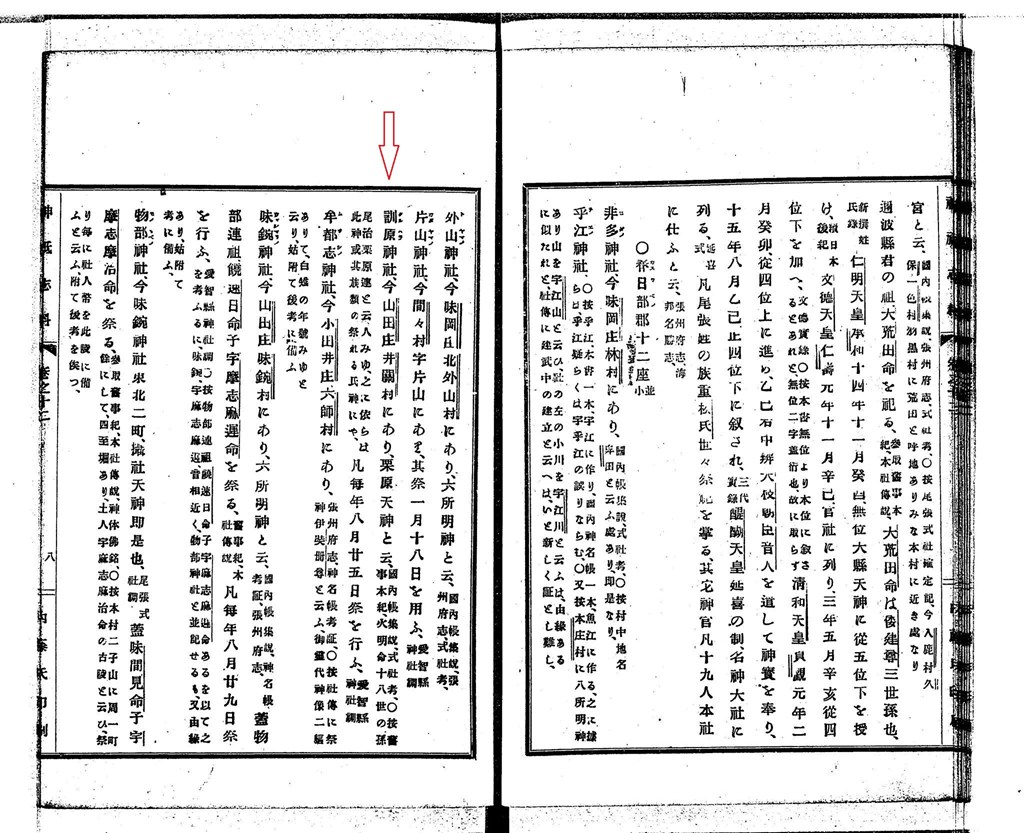 宮と云、國內帳集說、張州府志、式社考、〇按尾張式社確定記、今入鹿村久保一色村羽黒村に荒田と呼地ありみな本村に近き處なり
邇波縣君の祖大荒田命を祀る、參取舊事本紀、本社傳說、大荒田命は倭建尊三世孫也、
新撰姓氏錄、仁明天皇承和十四年十一月癸酉、無位大縣天神に從五位下を授
け、續日本後紀、文德天皇仁壽元年十一月辛已官社に列り、三年五月辛亥從四
位下を加へ、文德實錄〇按本書無位より本位に叙さるとあれど、無位二字蓋衍也故に取らず淸和天皇貞觀元年二
月癸卯從四位上に進め、乙巳右中辨大枝朝臣音人を遣して神寶を奉り、
十五年八月乙已正四位下に叙され、三代實錄醍醐天皇延喜の制、名神大社に
列る、延喜式、凡尾張姓の族重松氏世々祭祀を掌る、其它神官凡十九人本社
に仕ふと云、張州府志、海邦名勝志、
〇春日部郡十二座並小
非多神社、今味岡庄林村にあり、國內帳集說式社考〇按村中地名岸田と云ふ處あり、即是なり、
乎江神社、〇按乎江、本書一本、字江に作り、國內神名帳一本、魚江に作る、之に據らは、乎江疑らくは字乎江の誤りならむ、〇又按本庄村に八所明神
あり山を字江山と云ひ、社の左の小川を字江川と云ふは、由緣ある
に似たれど、社傳に建武中の建立と云へは、いと新しく證とし難し、
外山神社、今味岡庄北外山村にあり、六所明神と云、國內帳集說、張州府志、式社考、
片山神社、今間々村字片山にあり、其祭一月十八日を用ふ、愛智縣神社調
訓原神社、今山田庄井關村にあり、栗原天神と云、國內帳集說、式社考、〇按舊事本紀、火明命十八世の孫
尾治栗原連と云人みゆ、之に依らは此神或其族類の祭れる氏神にや、凡每年八月廿五日祭を行ふ、愛智縣神社調
牟都志神社、今小田井庄六師村にあり、張州府志、神名帳考證、〇按社傳に祭神伊奘册尊と云ふ、御靈代神像二軀
ありて、白雉の年號みゆと云り姑附て後考に備ふ
味鋺神社、今山田庄味鋺村にあり、六所明神と云、國內帳集說、神名帳考証、張州府志、蓋物
部連祖饒速日命子宇摩志麻遲命を祭る、舊事紀、本社傳說凡每年八月廿九日祭
を行ふ、愛智縣神社調〇按物部連祖饒速日命子宇麻志麻遲命あるを以て之を考ふるに味鋺、宇麻志麻遲音相近く、物部神社と並記せるも、又由緣
あり、姑附て考に備ふ、
物部神社、今味鋺神社東北二町、攝社天神即是也、尾張式社調蓋味間見命子宇
摩志摩治命を祭る、參取舊事紀本社傳說、神体佛銘〇按本村二子山に周一町餘にして、四至堀あり、土人宇麻志麻治命の古陵と云ひ、祭
り每に社人幣を此陵に備ふと云ふ、附て後考を俟つ、
神祇志料
卷之十三
八
內藤氏印刷